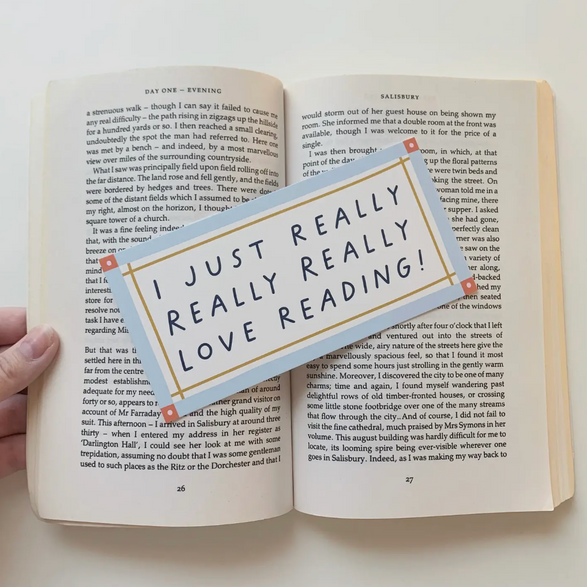 DAY ONE – EVENING
a strenuous walk – though I can say it failed to cause me
any real difficulty – the path rising in zigzags up the hillside
for a hundred yards or so. I then reached a small clearing,
undoubtedly the spot the man had referred to. Here one
was met by a bench – and indeed, by a most marvellous
view over miles of the surrounding countryside.
What I saw was principally field upon field rolling off into
the far distance. The land rose and fell gently, and the fields
were bordered by hedges and trees. There were
some of the distant fields which I assumed to be
my right, almost on the horizon, I thought
square tower of a church.
It was a fine feeling indeed
that, with the sound
breeze on
that
mind
that I
interesti
store for
resolve not
task I have
regarding Mi
But that was
settled here in th
modest establishm
adequate for my need of around
forty or so, appears to her grand visitor on
account of Mr Farraday and the high quality of my
suit. This afternoon – I arrived in Salisbury at around three
thirty – when I entered my address in her register as
'Darlington Hall', I could see her look at me with some
trepidation, assuming no doubt that I was some gentleman
used to such places as the Ritz or the Dorchester and that I
26
I JUST REALLY
REALLY REALLY
LOVE READING!
SALISBURY
would storm out of her guest house on being shown my
room. She informed me that a double room at the front was
available, though I was welcome to it for the price of a
single.
I was then brought room, in which, at that
point of the day up the floral patterns
of the were twin beds and
king the street. On
woman told me in a
facing mine, there
supper. I asked
she had gone,
perfectly clean
mer was also
saw on the
variety of
her along,
d-backed
hed my
then seated
one of the windows
shortly after four o'clock that I left
and ventured out into the streets of
wide, airy nature of the streets here give the
marvellously spacious feel, so that I found it most
easy to spend some hours just strolling in the gently warm
sunshine. Moreover, I discovered the city to be one of many
charms; time and again, I found myself wandering past
delightful rows of old timber-fronted houses, or crossing
some little stone footbridge over one of the many streams
that flow through the city. And of course, I did not fail to
visit the fine cathedral, much praised by Mrs Symons in her
volume. This august building was hardly difficult for me to
locate, its looming spire being ever-visible wherever one
goes in Salisbury. Indeed, as I was making my way back to
27